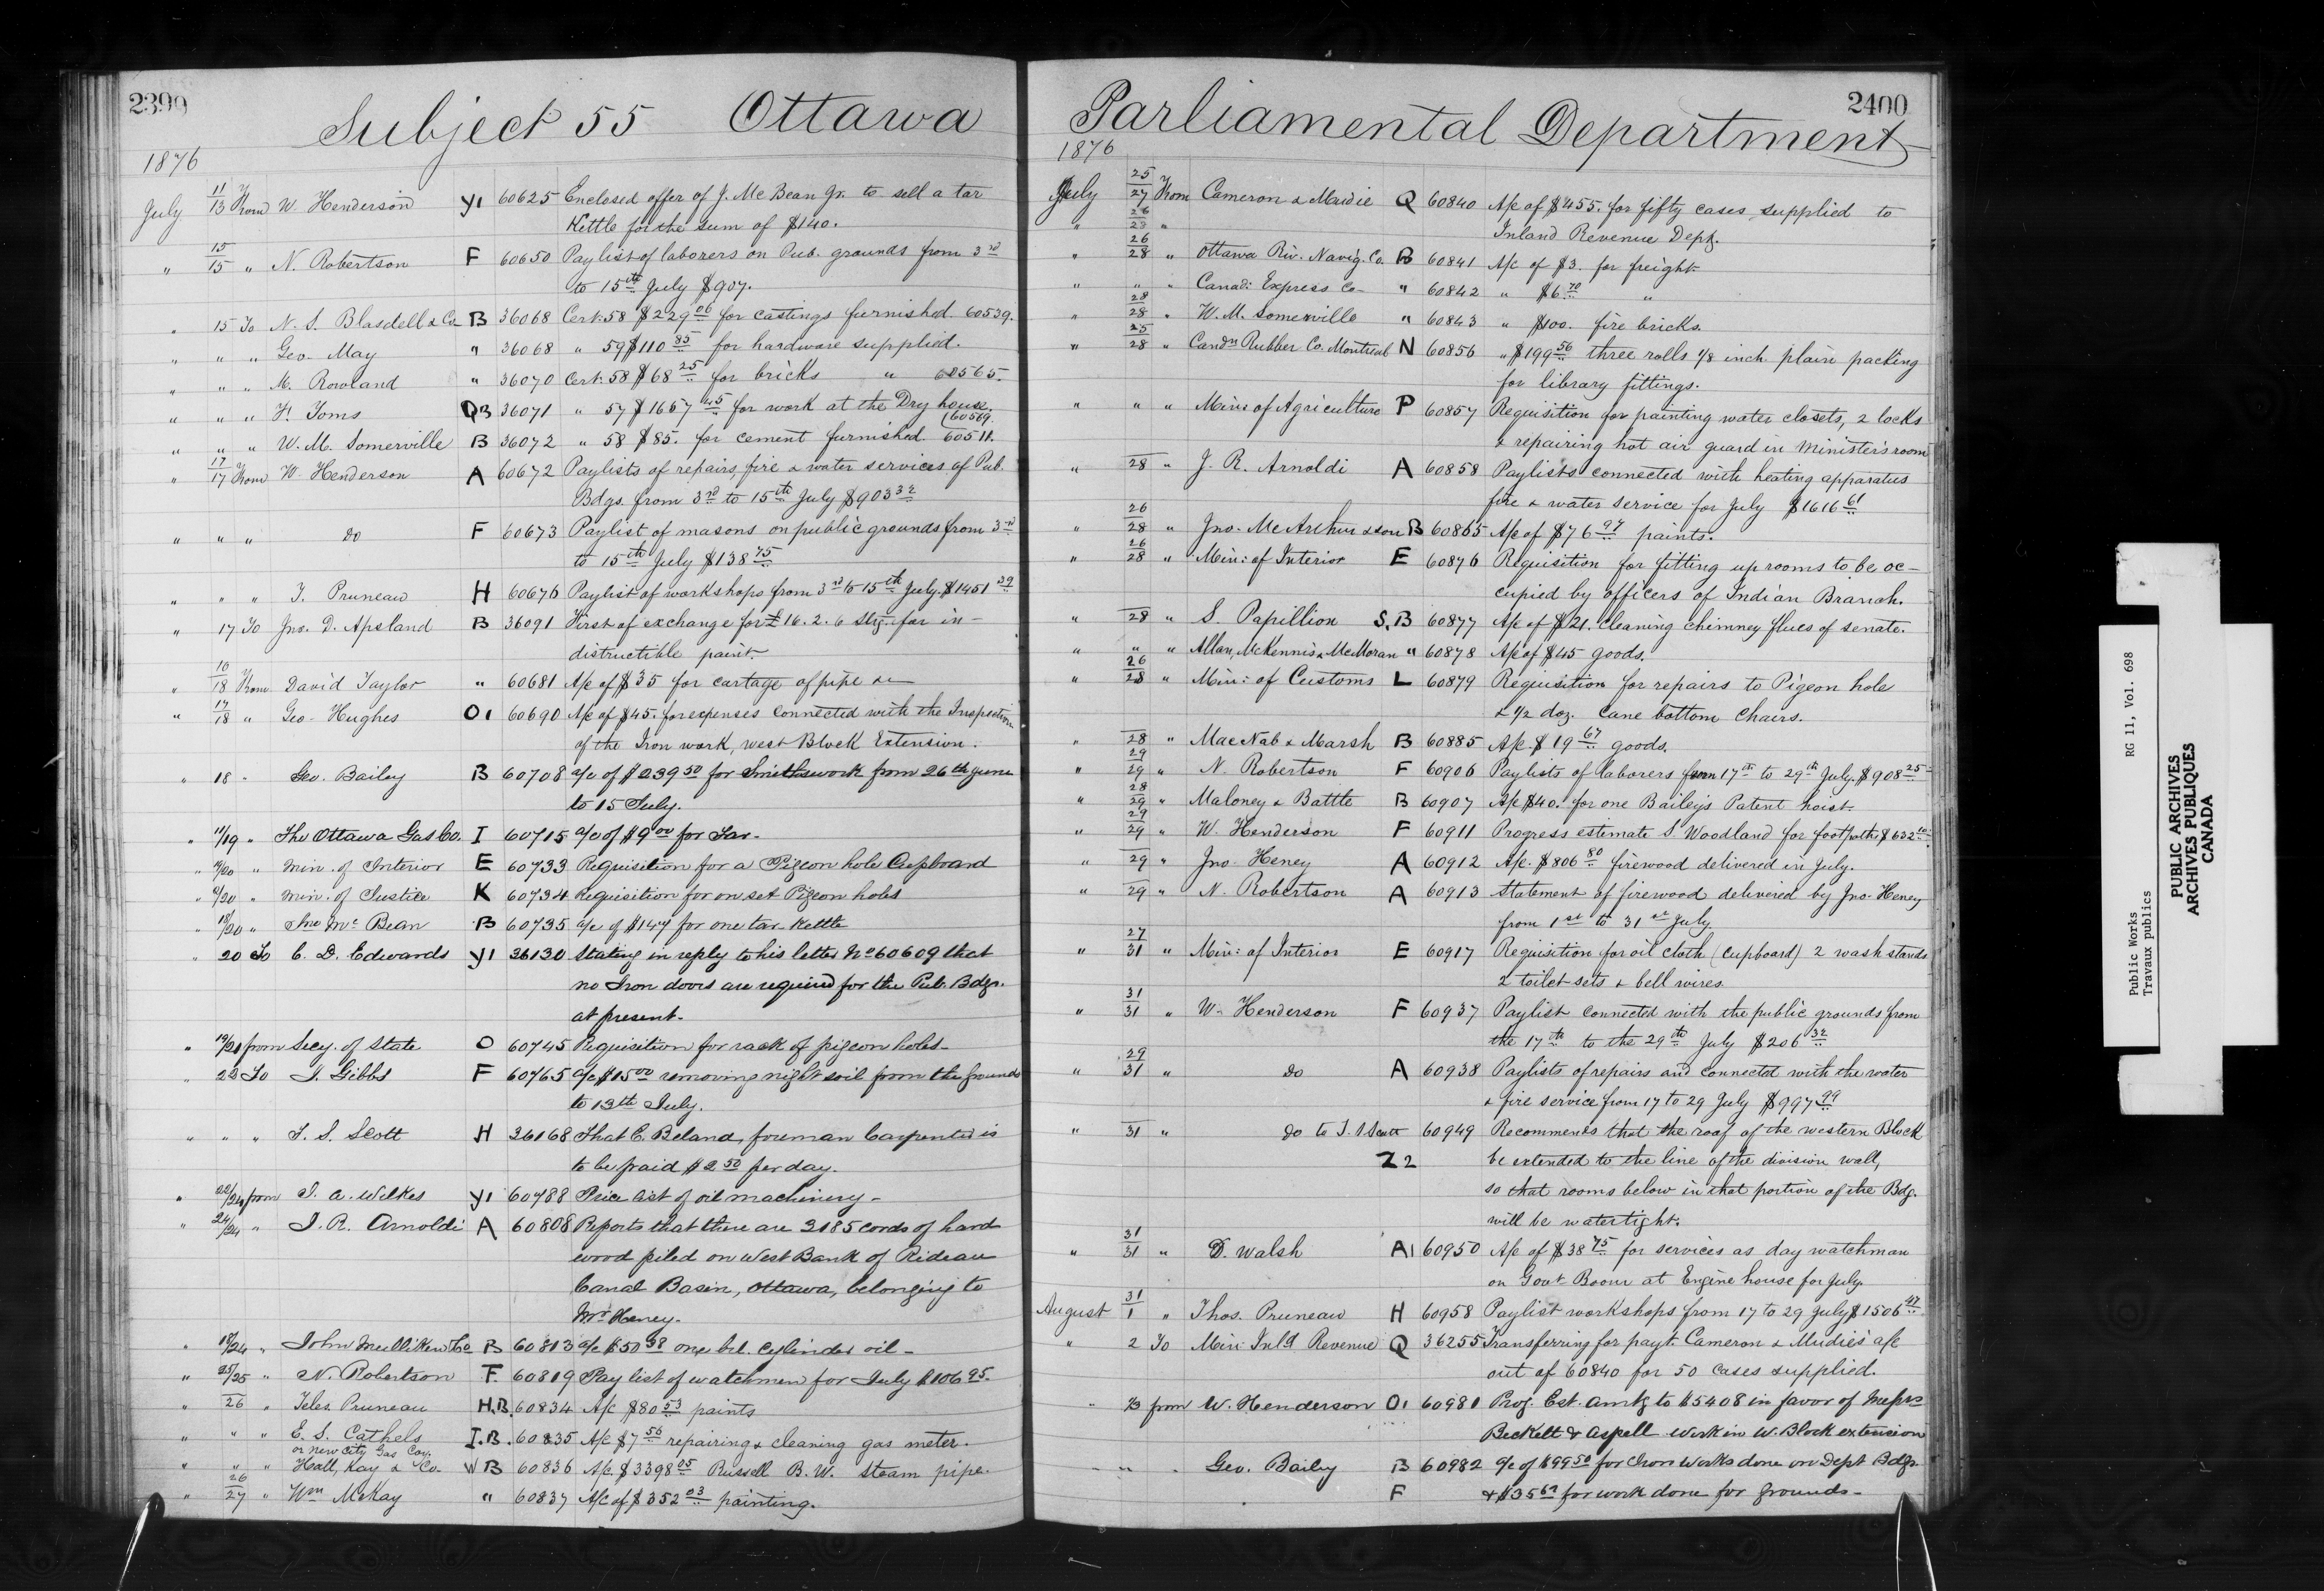 2399
Subject 55 Ottawa
1876
July 11/13 From W. Henderson Y1 60625 Enclosed offer of J. McBean Jr. to sell a tar
Kettle for the sum of $140.
" 15/15 " N. Robertson F 60650 Paylist of laborers on Pub. grounds from 3rd
to 15th July $907.
" 15 To N. S. Blasdell & Co B 36068 Cert. 58 $229 06 for castings furnished 60539.
" " " Geo. May " 36068 " 59 $110 85 for hardware supplied.
" " " M. Rowland " 36070 Cert. 58 $68 25 for bricks " 60565.
" " " H. Toms QB 36071 " 57 $1657 45 for work at the Dry house.
(60569.
" " " W. M. Somerville B 36072 " 58 $85. for cement furnished. 60511.
" 17/17 From W. Henderson A 60672 Paylists of repairs, fire & water services of Pub.
Bdgs. from 3rd to 15th July $903 32
" " " do F 60673 Paylist of masons on public grounds from 3rd
to 15th July $138 75
" " " T. Pruneau H 60676 Paylist of workshops from 3rd to 15th July. $1451 39
" 17 To Jno. D. Apsland B 36091 First of exchange for £16. 2. 6 Stg. for in-
distructible paint.
" 16/18 From David Taylor " 60681 A/c of $35 for cartage of pipe &c
" 17/18 " Geo. Hughes O1 60690 A/c of $45. for expenses connected with the Inspection
of the Iron work, west Block Extension.
" 18 " Geo. Bailey B 60708 a/c of $239 50 for Smithswork from 26th June
to 15 July.
" 11/19 " The Ottawa Gas Co. I 60715 a/c of $9 00 for Tar.
" /20 " Min. of Interior E 60733 Requisition for a Pigeon hole Cupboard
" /20 " Min. of Justice K 60734 Requisition for on set Pigeon holes
" 18/20 " Jno Mc Bean B 60735 a/c of $147 for one tar Kettle
" 20 To C. D. Edwards Y1 36130 Stating in reply to his letter No 60609 that
no Iron doors are required for the Pub. Bdgs.
at present.
" 19/21 from Secy. of State O 60745 Requisition for rack of pigeon holes-
" 23 To J. Gibbs F 60765 a/c $15 00 removing night soil from the Grounds
to 13th July.
" " " T. S. Scott H 36168 That E. Beland, foreman Carpenter is
to be paid $2 50 per day.
" 22/24 from J. A. Wilkes Y1 60788 Price list of oil machinery-
" 24/24 " J. R. Arnoldi A 60808 Reports that there are 3185 cords of hard
wood piled on West Bank of Rideau
Canal Basin, Ottawa, belonging to
Mr Heney.
" 18/24 " John Mulliken & Co B 60813 a/c $50 38 one brl. cylinder oil-
" 25/25 " N. Robertson F. 60819 Pay list of watchmen for July $106 95.
" 26 " Teles. Pruneau H.B. 60834 A/c $80 53 paints
" " " E. S. Cathels I.B. 60835 A/c $7 56 repairing & cleaning gas meter.
or New City Gas Coy.
" " " Hall, Kay & Co. W B 60836 A/c $3398 05 Russell B. W. steam pipe.
" 26/27 " Wm McKay " 60837 A/c of $352 03 painting.
2400
Parliamental Department
1876
July 25/27 From Cameron & Mudie Q 60840 A/c of $455. for fifty cases supplied to
" 26/28 " Inland Revenue Dept.
" 26/28 " Ottawa Riv. Navig. Co. B 60841 A/c of $3. for freight
" " " Canad: Express Co " 60842 " $6 70 "
" 28/28 " W. M. Somerville " 60843 " $100. fire bricks.
" 25/28 " Candn Rubber Co. Montreal N 60856 " $199 56 three rolls 1/8 inch plain packing
for library fittings.
" " " Min: of Agriculture P 60857 Requisition for painting water closets, 2 locks
& repairing hot air guard in Minister's room
" 28 " J. R. Arnoldi A 60858 Paylists connected with heating apparatus
fire & water service for July $1616 61
" 26/28 " Jno. McArthur & son B 60865 A/c of $76 97 paints.
" 26/28 " Min: of Interior E 60876 Requisition for fitting up rooms to be oc-
cupied by officers of Indian Branch.
" 28 " S. Papillion S.B 60877 A/c of $21. cleaning chimney flues of senate.
" " " Allan, McKennis & McMoran " 60878 A/c of $45 goods.
" 26/28 " Min: of Customs L 60879 Requisition for repairs to Pigeon hole
& 1/2 doz. cane bottom chairs.
" 28 " MacNab & Marsh B 60885 A/c $19 67 goods.
" 29/29 " N. Robertson F 60906 Paylists of laborers from 17th to 29th July. $908 25
" 28/29 " Maloney & Battle B 60907 A/c $40. for one Bailey's Patent hoist.
" 29/29 " W. Henderson F 60911 Progress estimate S Woodland for footpaths $632 10
" 29 " Jno. Heney A 60912 A/c. $806 80 firewood delivered in July.
" 29 " N. Robertson A 60913 Statement of firewood delivered by Jno. Heney
from 1st to 31st July
" 27/31 " Min: of Interior E 60917 Requisition for oil cloth (cupboard) 2 wash stands
2 toilet sets & bell wires.
" 31/31 " W. Henderson F 60937 Paylist connected with the public grounds from
the 17th to the 29th July $206 32
" 29/31 " do A 60938 Paylists of repairs and connected with the water
& fire service from 17 to 29 July $997 99
" 31 " do to T. S. Scott 60949 Recommends that the roof of the western Block
Z2 be extended to the line of the division wall,
so that rooms below in that portion of the Bdg.
will be watertight.
" 31/31 " D. Walsh A1 60950 A/c of $38 75 for services as day watchman
on Govt Boom at Engine house for July.
August 31/1 " Thos. Pruneau H 60958 Paylist workshops from 17 to 29 July $1506 47
" 2 To Min: Inld Revenue Q 36255 Transferring for payt. Cameron & Mudie's a/c
out of 60840 for 50 cases supplied.
" /3 from W. Henderson O1 60981 Prog. Est. amtg to $5408 in favor of Messrs
Beckett & Aspell work in W. Block extension
" " " Geo. Baily B 60982 a/c of $99 50 for Iron Works done on Dept Bdgs.
F & $35 62 for work done for grounds-
Public Works
Travaux publics
RG 11, Vol. 698
PUBLIC ARCHIVES
ARCHIVES PUBLIQUES
CANADA